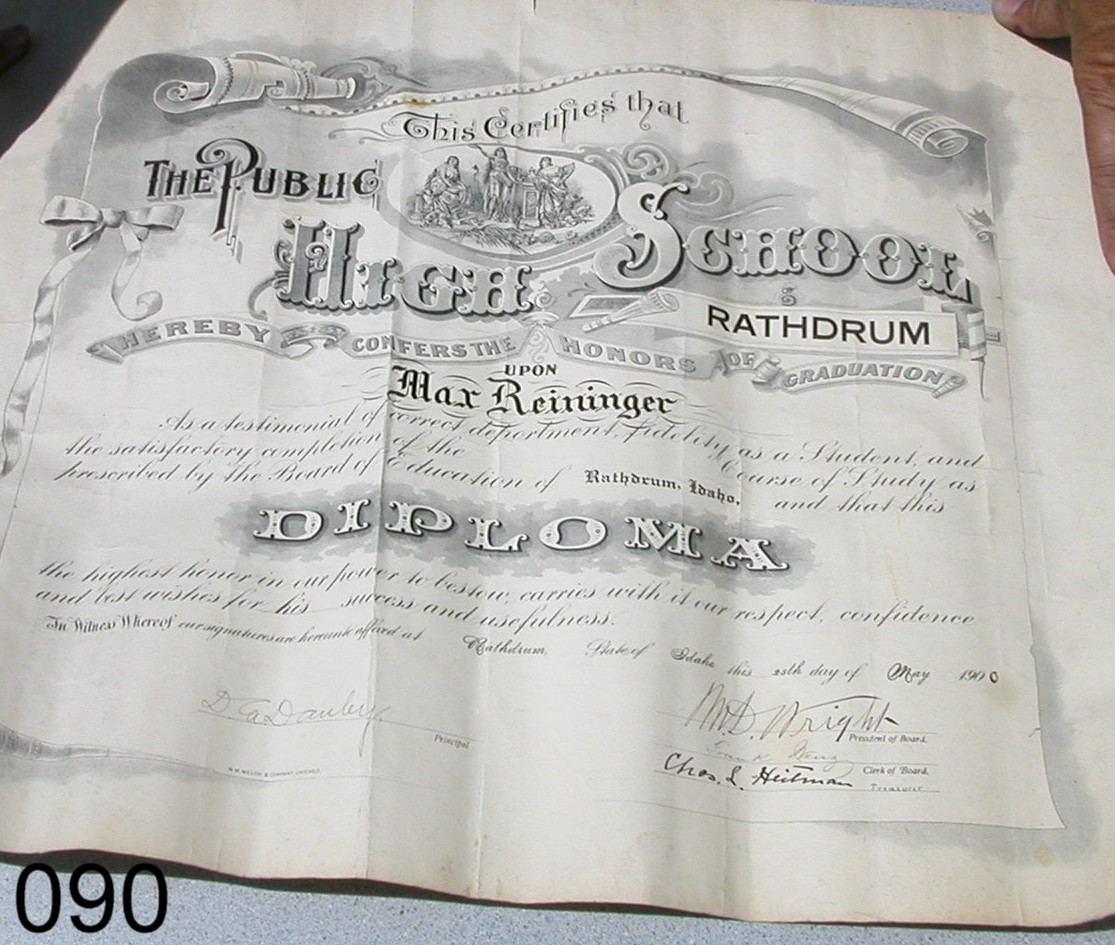 This Certifies that
THE PUBLIC
HIGH SCHOOL
RATHDRUM
HEREBY CONFERS THE HONORS OF GRADUATION
UPON
Max Reininger
As a testimonial of correct deportment, fidelity as a Student, and
the satisfactory completion of the Course of Study as
prescribed by the Board of Education of Rathdrum, Idaho. and that this
DIPLOMA
the highest honor in our power to bestow, carries with it our respect, confidence
and best wishes for his success and usefulness.
In Witness Whereof our signatures are hereunto affixed at Rathdrum, State of Idaho this 25th day of May 1900
D. G. Danley Principal
M. D. Wright President of Board.
Frank Clerk of Board.
Chas. L. Heitman Treasurer
W. M. WELCH & COMPANY, CHICAGO.
090